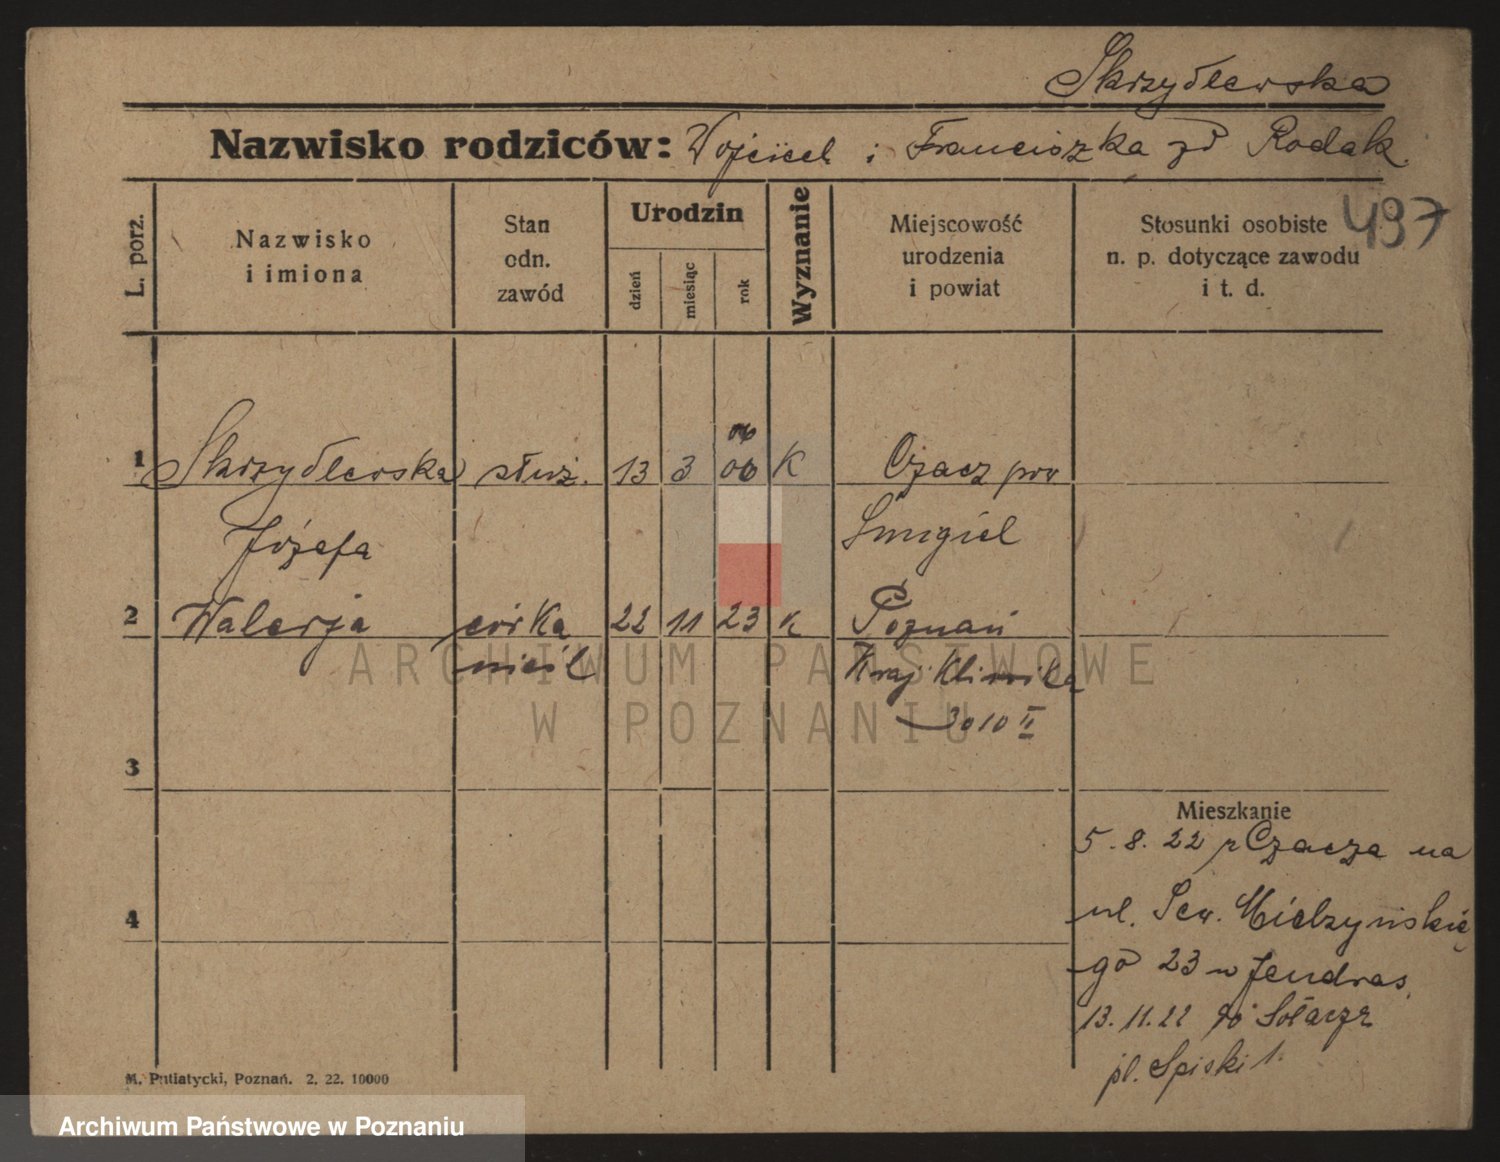 Skrzydlewska
Nazwisko rodziców: Wojciech i Franciszka zd Rodak
497
L. porz.
Nazwisko
i imiona
Stan
odn.
zawód
Urodzin
dzień
miesiąc
rok
Wyznanie
Miejscowość
urodzenia
i powiat
Stosunki osobiste
n. p. dotyczące zawodu
i t. d.
06
1 Skrzydlewska służ. 13 3 06 K Czacz pow
Józefa Śmigiel
2 Walerja córka 22 11 23 K Poznań
nieśl Kraj Klinika
3010 II
ARCHIWUM PAŃSTWOWE
W POZNANIU
3
Mieszkanie
5. 8. 22 z Czacza na
4
ul. Sew. Mielżyńskie
go 23 u Jendras
13. 11. 22 do Sołacza
pl. Spiski 1.
M. Putiatycki, Poznań. 2. 22. 10000
Archiwum Państwowe w Poznaniu